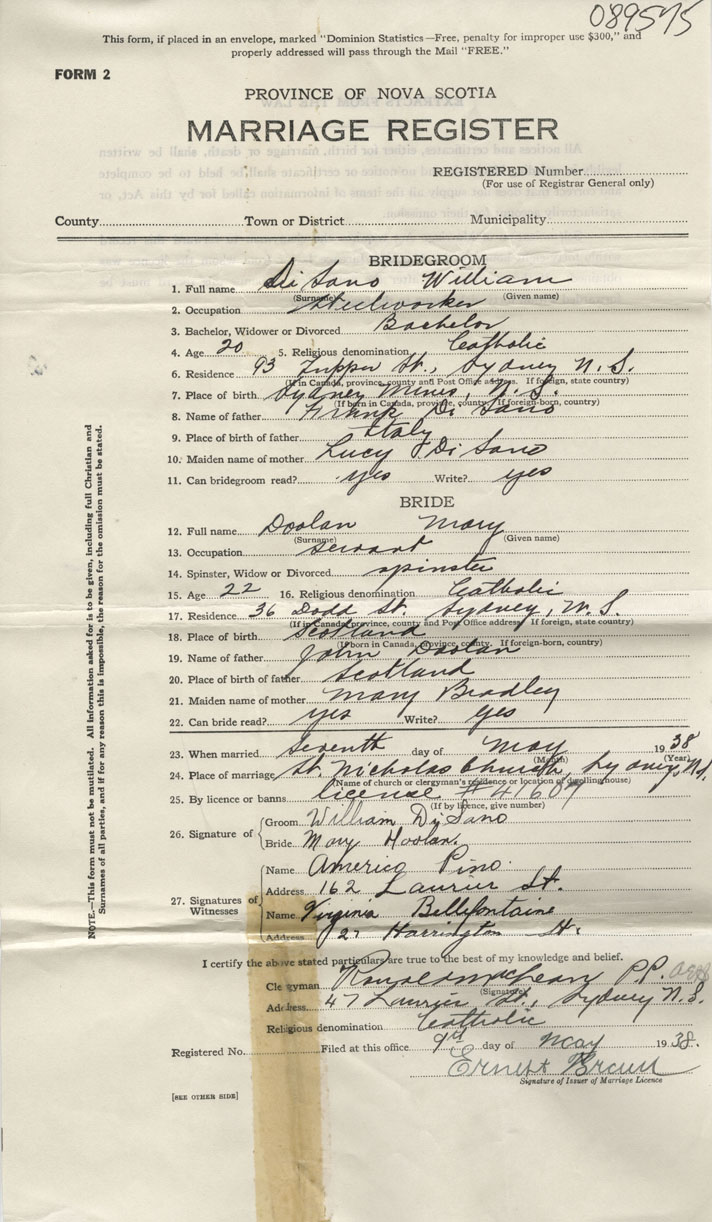 089575
This form, if placed in an envelope, marked "Dominion Statistics—Free, penalty for improper use $300," and
properly addressed will pass through the Mail "FREE."
FORM 2
PROVINCE OF NOVA SCOTIA
MARRIAGE REGISTER
REGISTERED Number
(For use of Registrar General only)
County Town or District Municipality
BRIDEGROOM
1. Full name Di Sano William
(Surname) (Given name)
2. Occupation Steelworker
3. Bachelor, Widower or Divorced Bachelor
4. Age 20 5. Religious denomination Catholic
6. Residence 93 Tupper St., Sydney N.S.
(If in Canada, province, county and Post Office address. If foreign, state country)
7. Place of birth Sydney Mines, N.S.
(If born in Canada, province, county. If foreign-born, country)
8. Name of father Frank Di Sano
9. Place of birth of father Italy
10. Maiden name of mother Lucy Di Sano
11. Can bridegroom read? yes Write? yes
BRIDE
12. Full name Doolan Mary
(Surname) (Given name)
13. Occupation servant
14. Spinster, Widow or Divorced spinster
15. Age 22 16. Religious denomination Catholic
17. Residence 36 Dodd St. Sydney, N.S.
(If in Canada, province, county and Post Office address If foreign, state country)
18. Place of birth Scotland
(If born in Canada, province, county. If foreign-born, country)
19. Name of father John Doolan
20. Place of birth of father Scotland
21. Maiden name of mother Mary Bradley
22. Can bride read? yes Write? yes
23. When married Seventh day of May 1938
(Month) (Year)
24. Place of marriage St. Nicholas Church, Sydney, N.S.
(Name of church or clergyman's residence or location of dwelling house)
25. By licence or banns license #41607
(If by licence, give number)
26. Signature of
Groom William DiSano
Bride Mary Doolan.
27. Signatures of Witnesses
Name Americo Pino.
Address 162 Laurier St.
Name Virginia Bellefontaine
Address 27 Harrington St.
I certify the above stated particulars are true to the best of my knowledge and belief.
Clergyman Ronald MacLean P.P.
(Signature)
Address 47 Laurier St., Sydney N.S.
Religious denomination Catholic
Registered No. Filed at this office 9th day of May 1938.
Ernest Brown
Signature of Issuer of Marriage Licence
[SEE OTHER SIDE]
NOTE.—This form must not be mutilated. All information asked for is to be given, including full Christian and
Surnames of all parties, and if for any reason this is impossible, the reason for the omission must be stated.